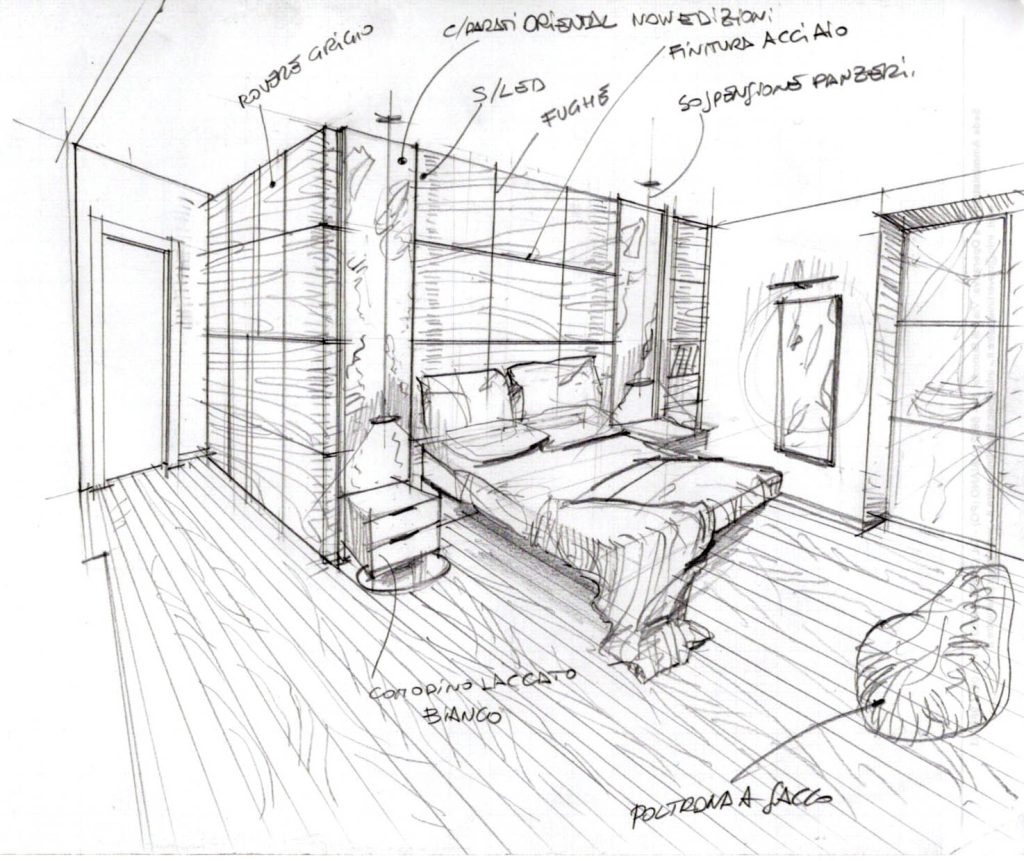 ROVERE GRIGIO
C/PARATI ORIENTAL NOW EDIZIONI
FINITURA ACCIAIO
S/LED
FUGHE
SOSPENSIONE PANZERI.
COMODINO LACCATO
BIANCO
POLTRONA A SACCO